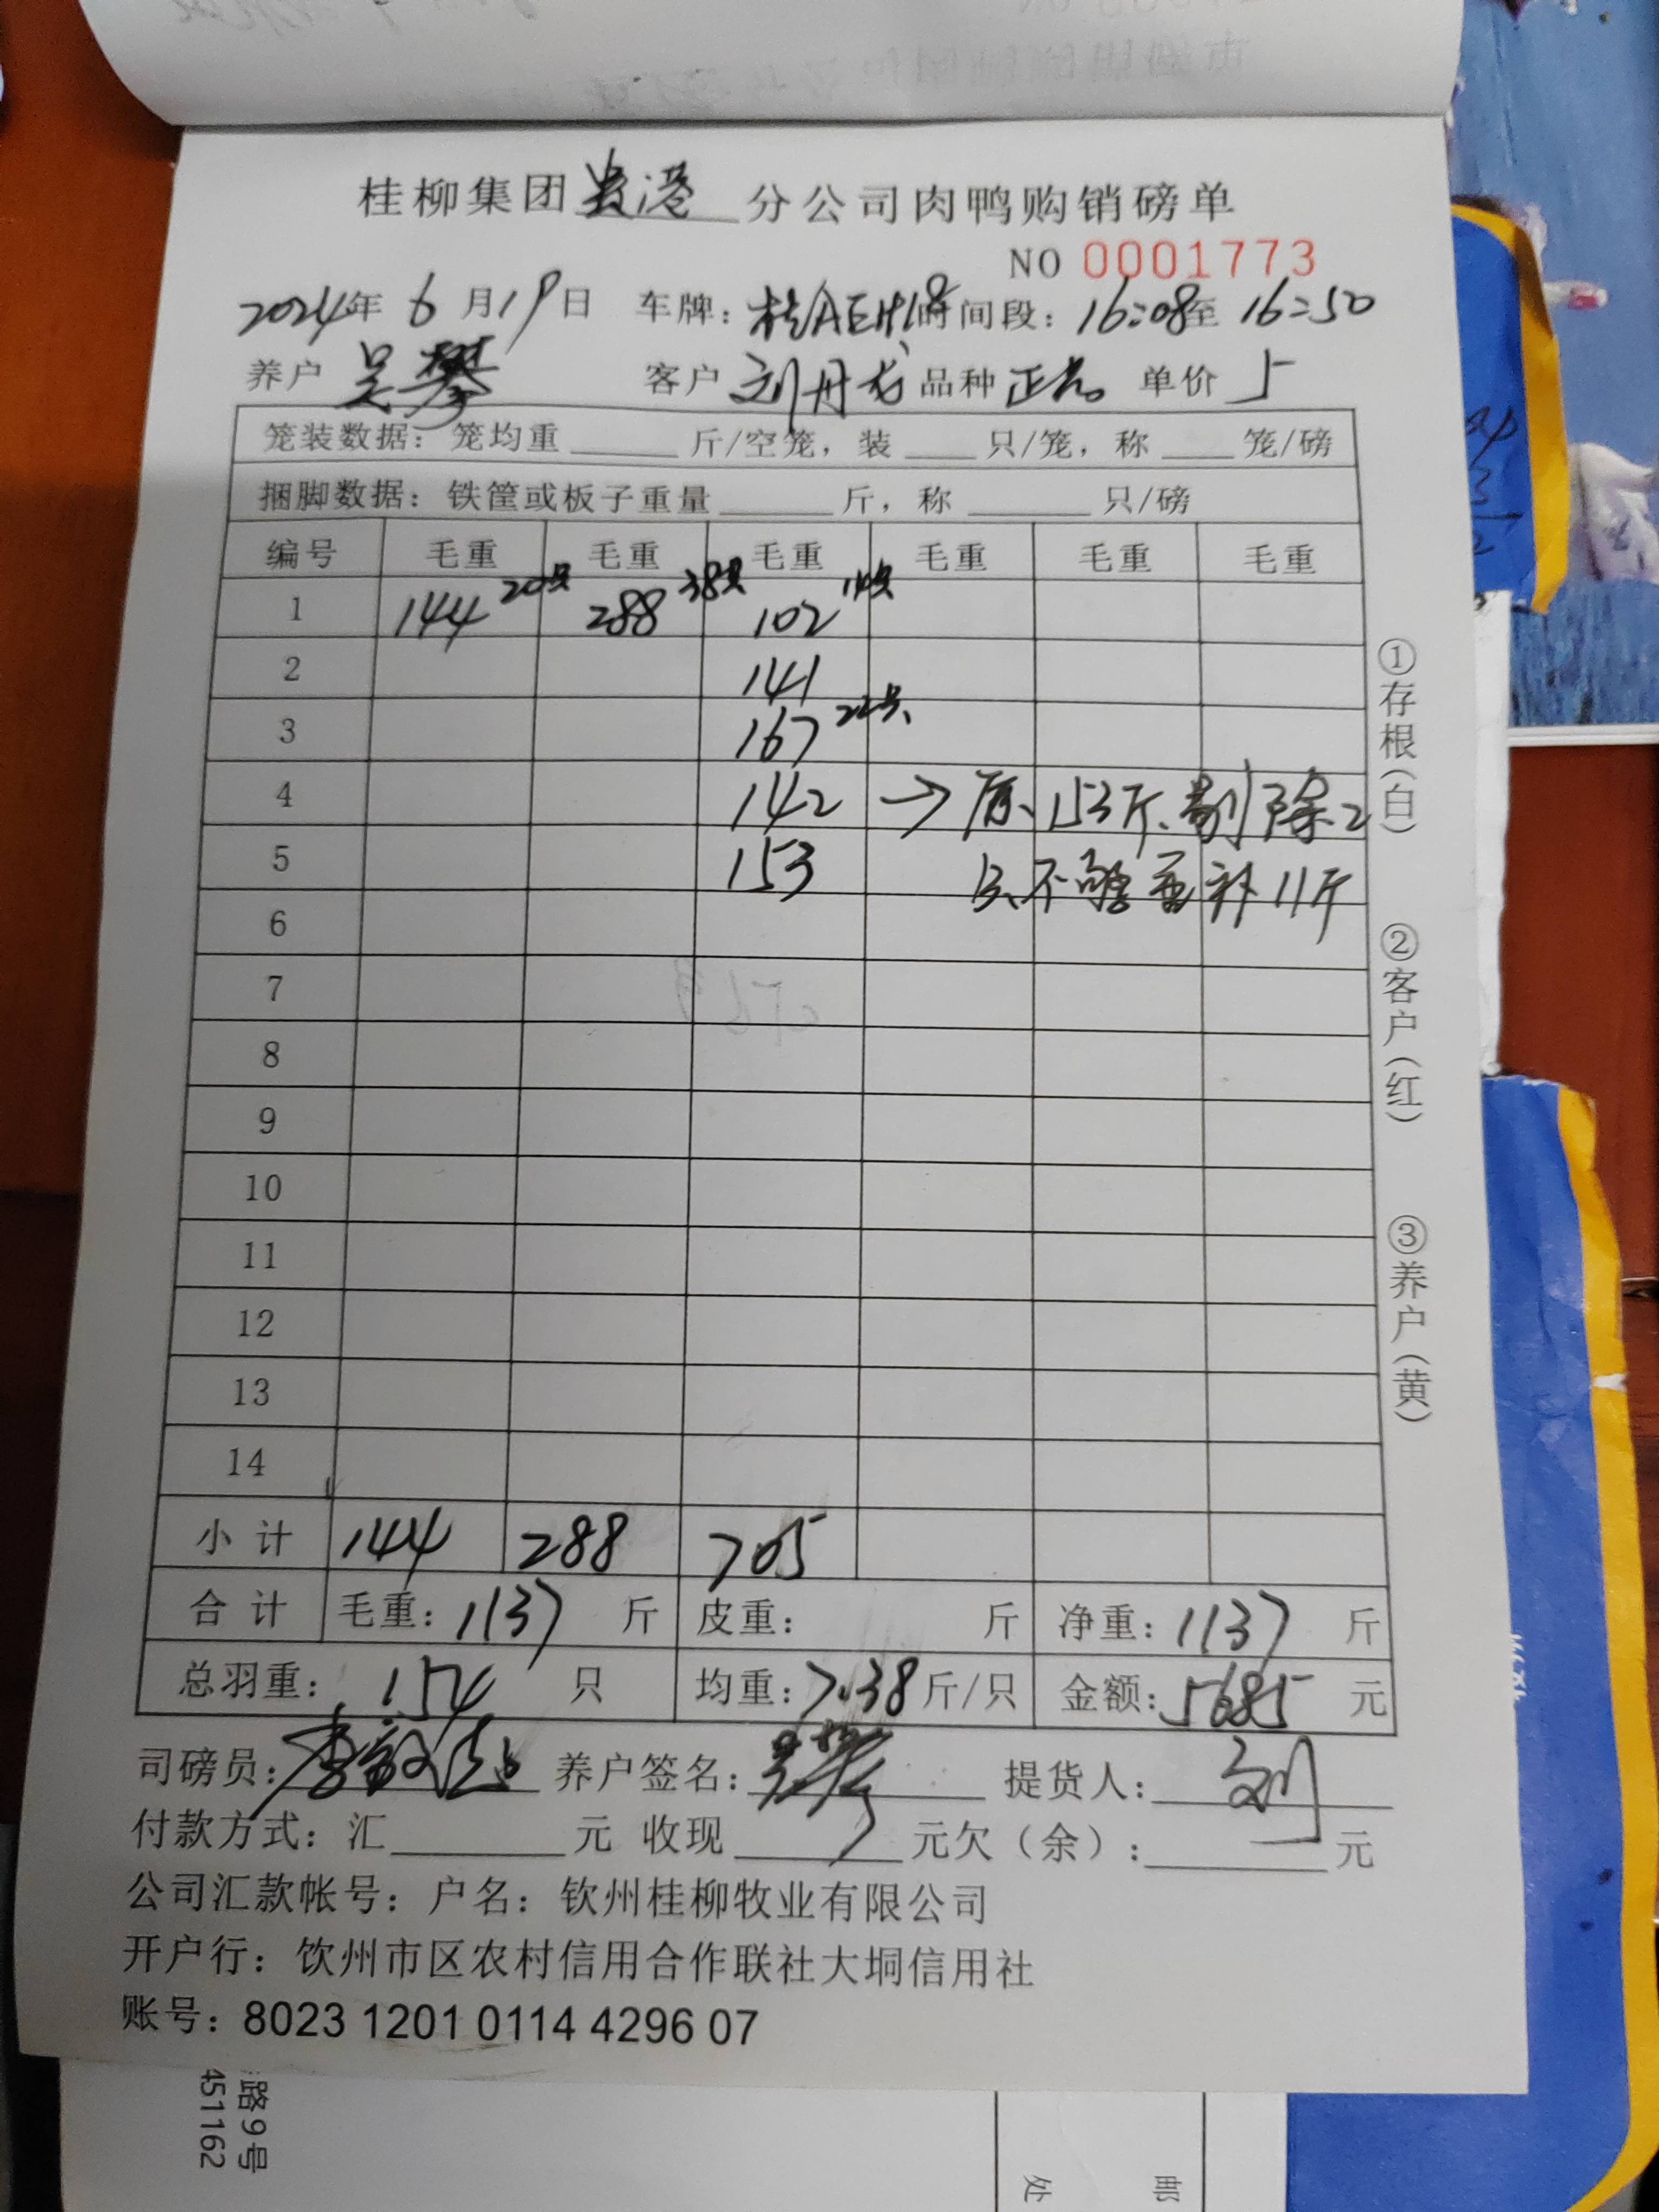 桂柳集团贵港分公司肉鸭购销磅单
NO 0001773
2024年 6月19日 车牌:桂AEH18 时间段:16:08至 16:50
养户 吴攀 客户 刘丹龙 品种 正品 单价 5
笼装数据:笼均重 斤/空笼,装 只/笼,称 笼/磅
捆脚数据:铁筐或板子重量 斤,称 只/磅
编号 毛重 毛重 毛重 毛重 毛重 毛重
1 144 20只 288 38只 102 14只
2 141
3 167 22只
4 142 → 原153斤剔除2
5 153 只不够重补11斤
6
7
8
9
10
11
12
13
14
小计 144 288 705
合计 毛重:1137 斤 皮重: 斤 净重:1137 斤
总羽重:154 只 均重:7.38斤/只 金额:5685 元
司磅员: 养户签名:吴攀 提货人:刘
付款方式:汇 元 收现 元欠(余): 元
公司汇款帐号:户名:钦州桂柳牧业有限公司
开户行:饮州市区农村信用合作联社大垌信用社
账号:8023 1201 0114 4296 07
①存根(白)
②客户(红)
③养户(黄)
路9号
451162
处
邮